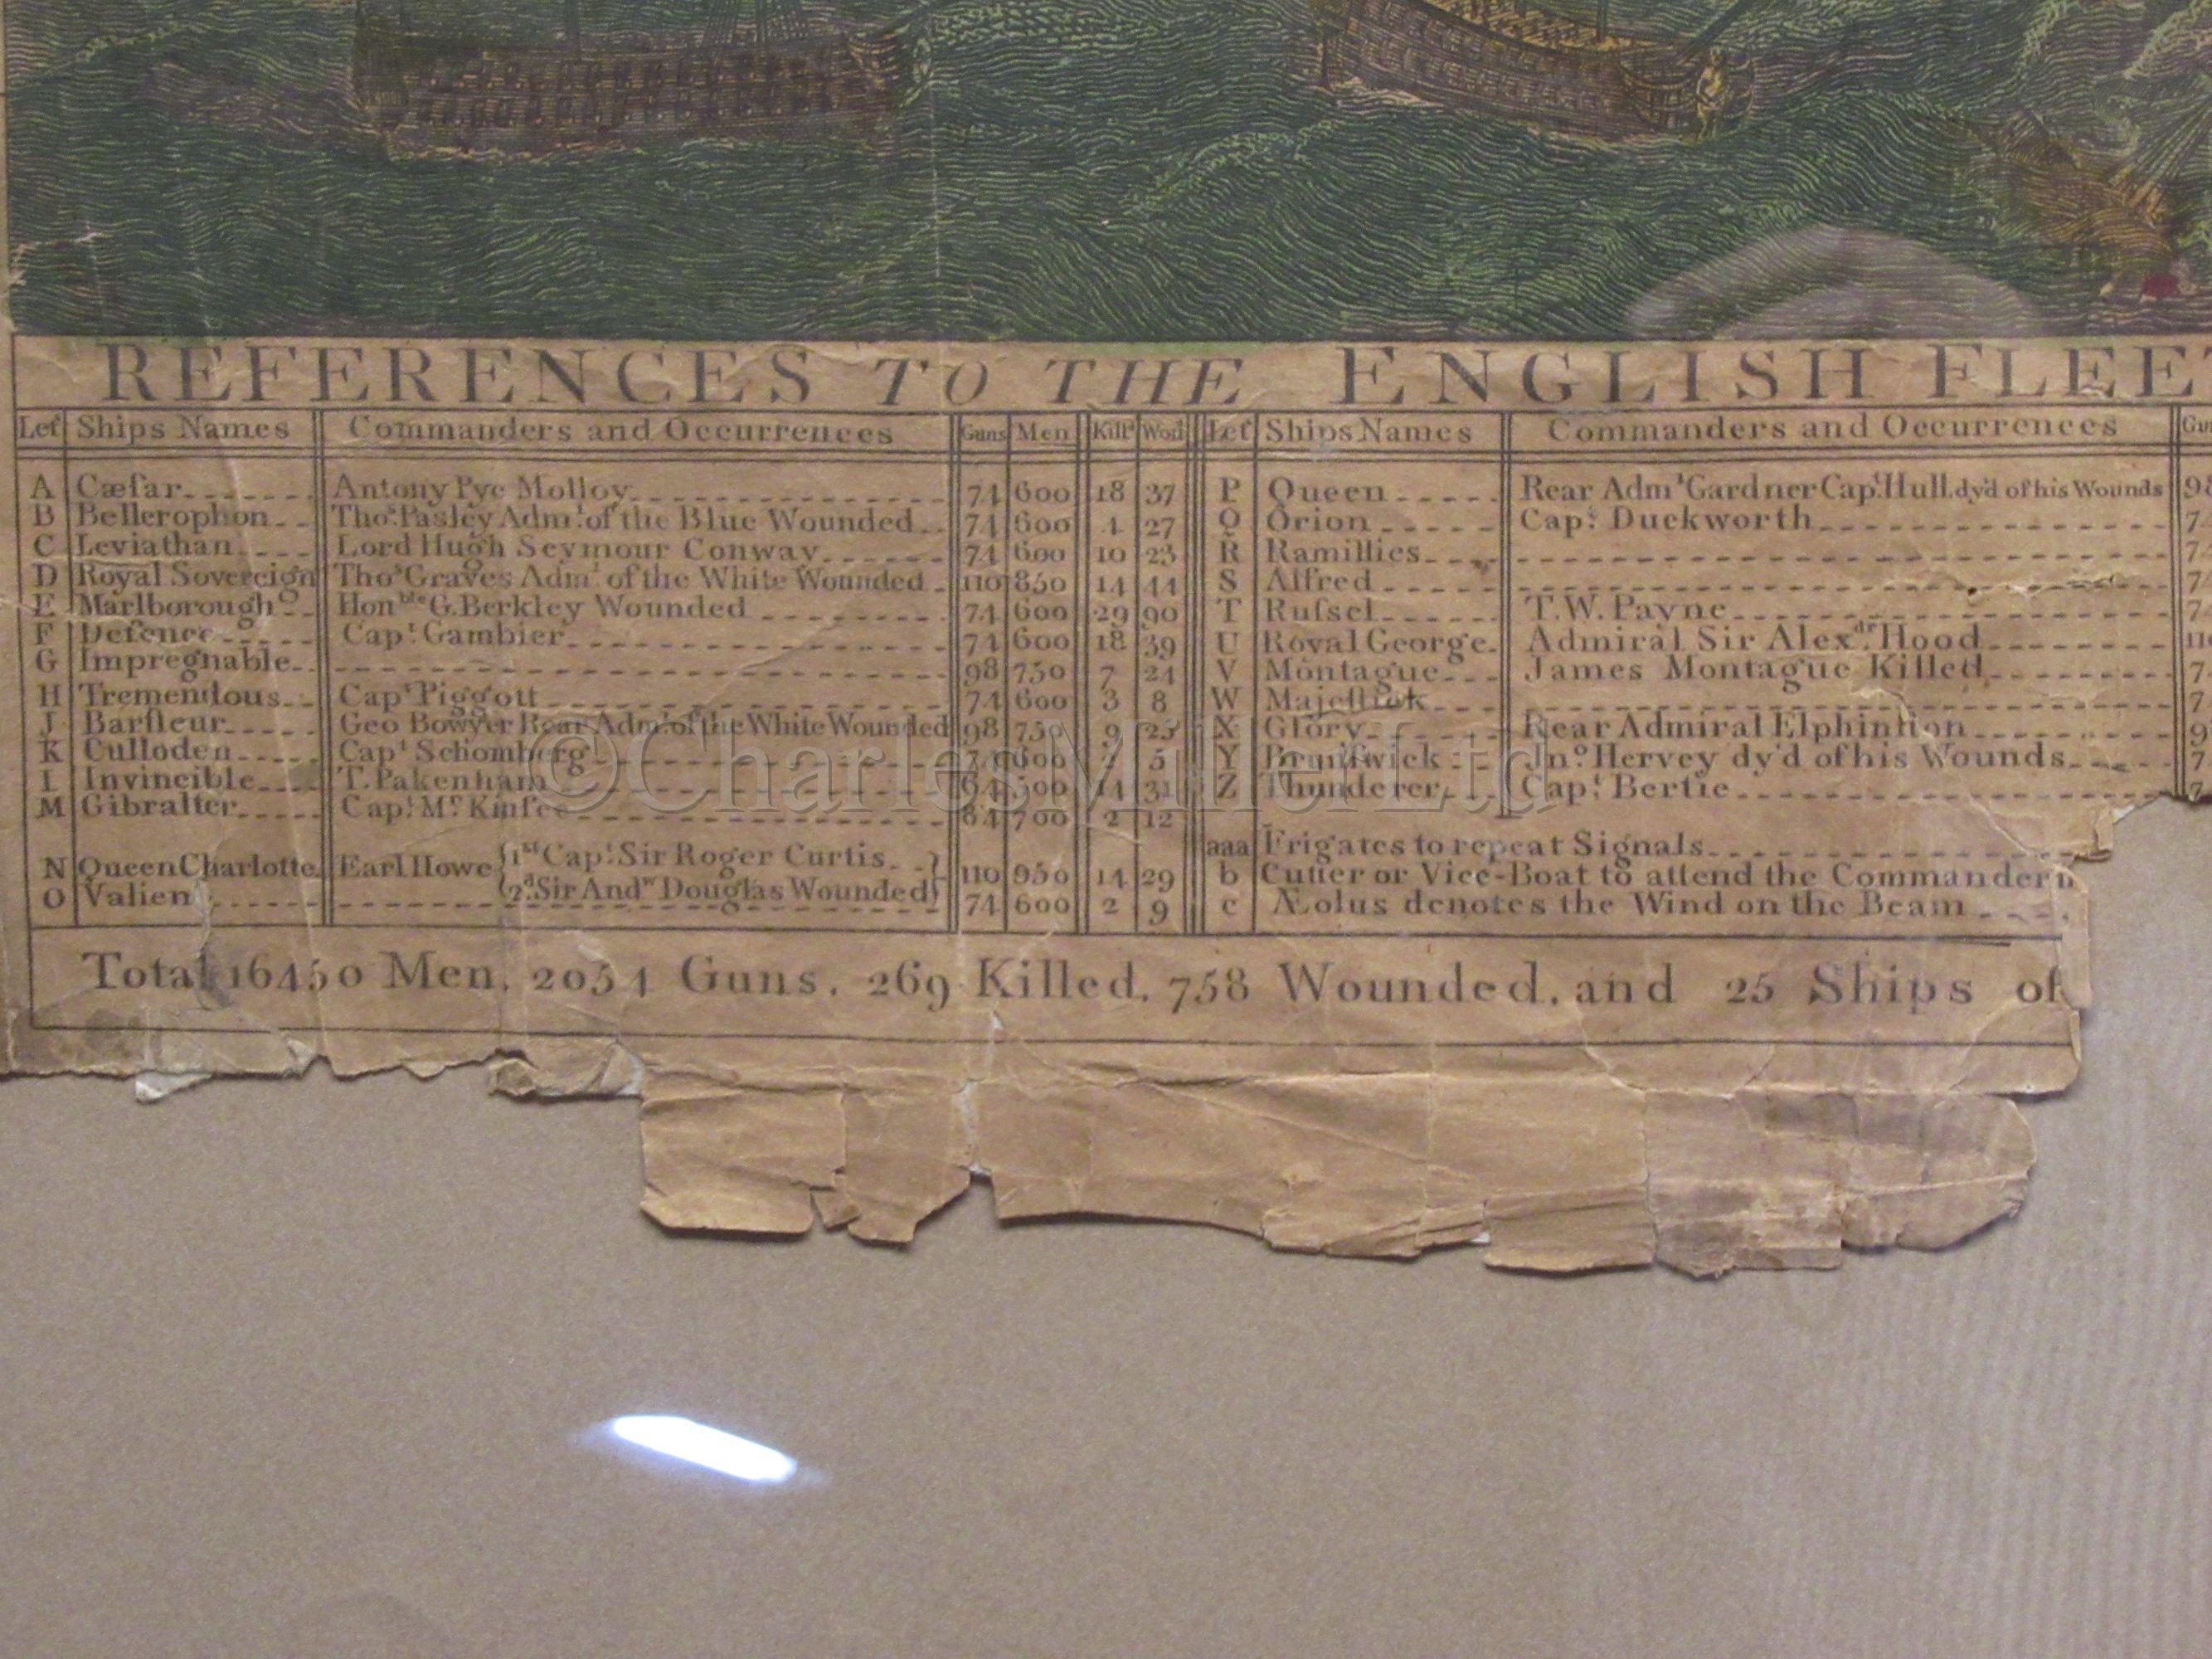 REFERENCES TO THE ENGLISH FLEET
Let.r Ships Names Commanders and Occurrences Guns Men Kill.d Wou.d Let.r Ships Names Commanders and Occurrences
A Cæſar Antony Pye Molloy 74 600 18 37 P Queen Rear Adm.l Gardner Cap.t Hutt dy'd of his Wounds 98
B Bellerophon Tho.s Pasley Adm.l of the Blue Wounded 74 600 4 27 Q Orion Cap.t Duckworth
C Leviathan Lord Hugh Seymour Conway 74 600 10 23 R Ramillies
D Royal Sovereign Tho.s Graves Adm.l of the White Wounded 110 850 14 44 S Alfred
E Marlborough Hon.ble G. Berkley Wounded 74 600 29 90 T Ruſsel T. W. Payne
F Defence Cap.t Gambier 74 600 18 39 U Royal George Admiral Sir Alex.dr Hood
G Impregnable 98 750 7 24 V Montague James Montague Killed
H Tremendous Cap.t Piggott 74 600 3 8 W Majeſtick
J Barfleur Geo Bowyer Rear Adm.l of the White Wounded 98 750 9 25 X Glory Rear Admiral Elphinſton
K Culloden Cap.t Schomberg 74 600 5 Y Brunſwick Jn.o Hervey dy'd of his Wounds
L Invincible T. Pakenham 500 14 31 Z Thunderer Cap.t Bertie
M Gibralter Cap.t M.r Kinſee 84 700 2 12
aaa Frigates to repeat Signals
N Queen Charlotte Earl Howe {1.st Cap.t Sir Roger Curtis 2.d Sir And.w Douglas Wounded} 110 950 14 29 b Cutter or Vice-Boat to attend the Commander
O Valien 74 600 2 9 c Æolus denotes the Wind on the Beam
Total 16450 Men, 2054 Guns, 269 Killed, 758 Wounded, and 25 Ships of
©CharlesMillerLtd